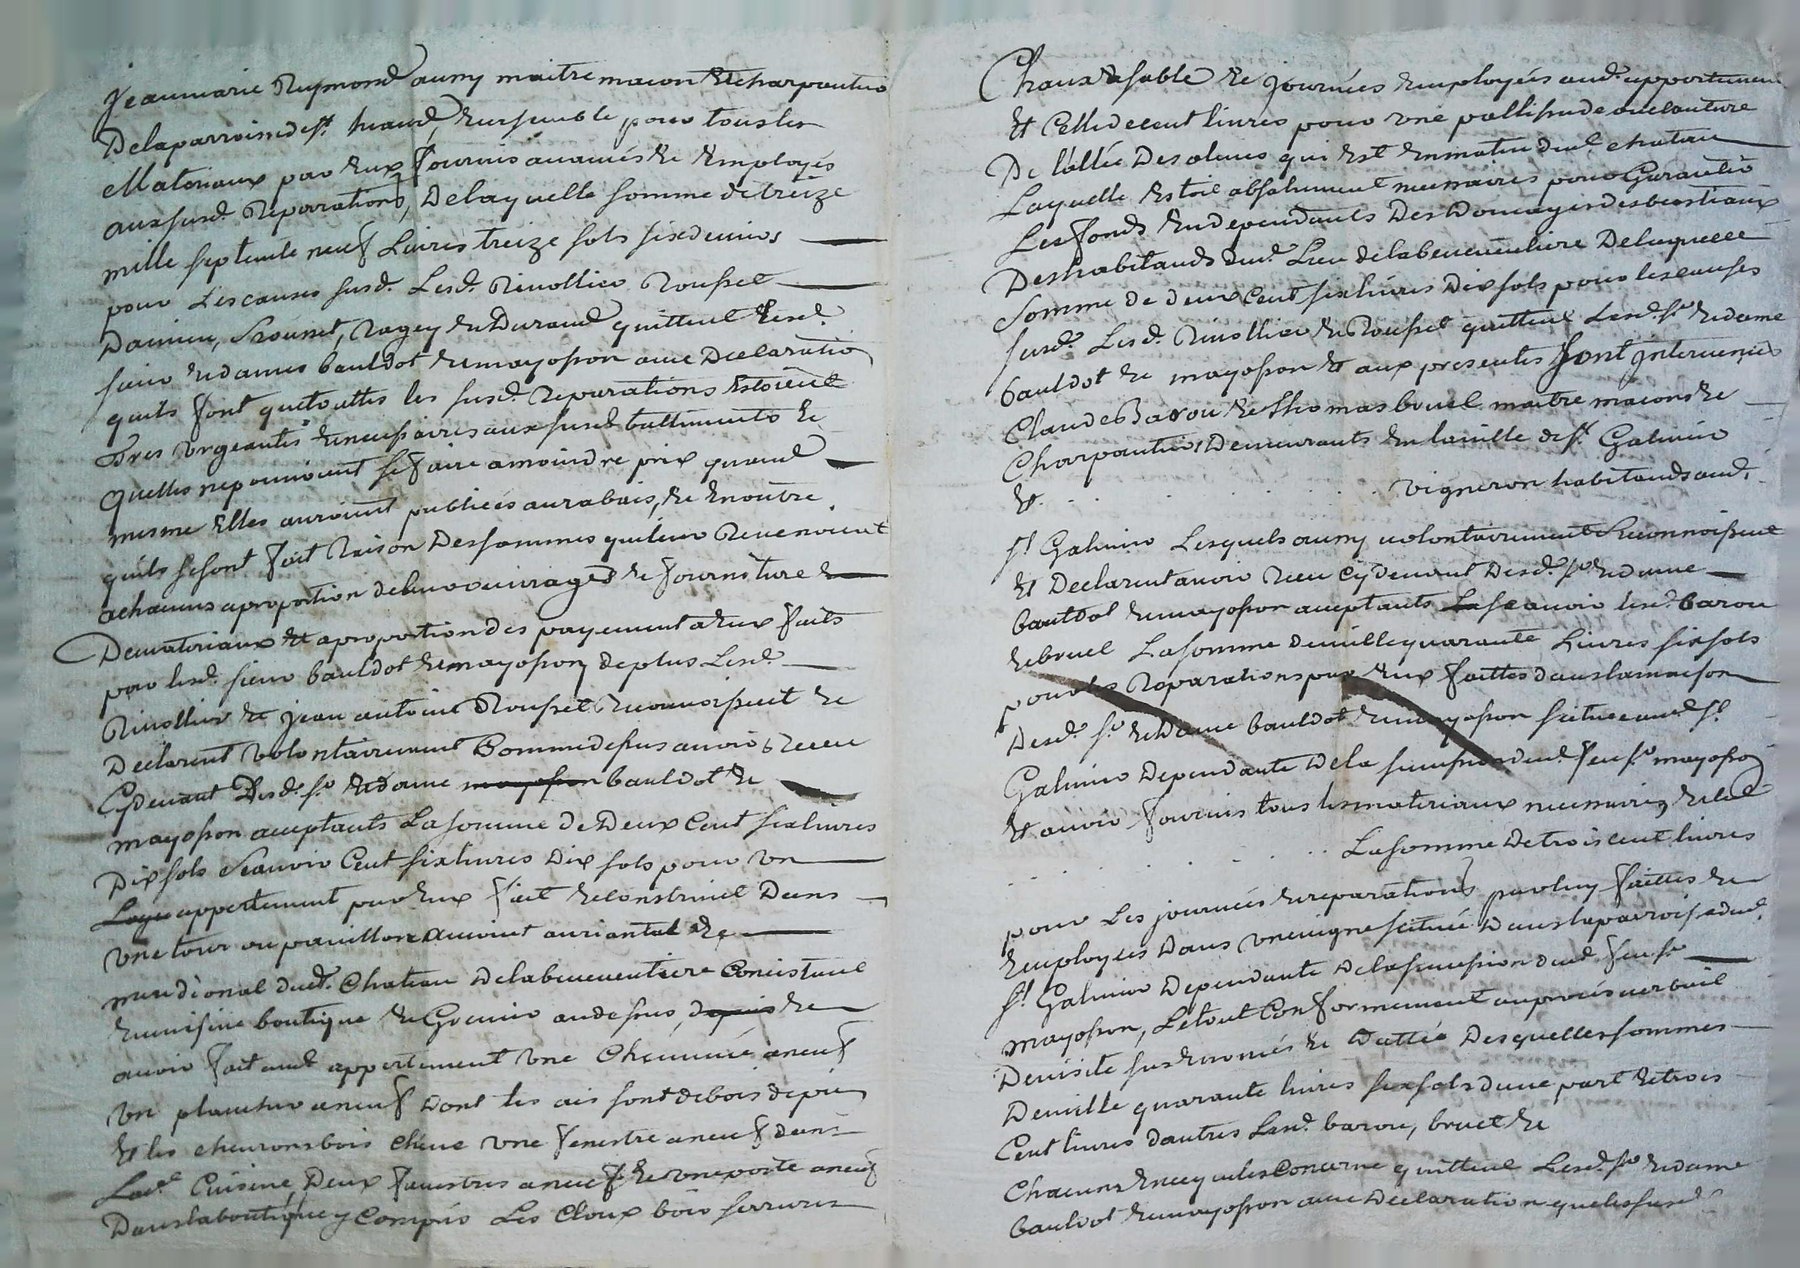 Jeanmarie Reymond aumy maitre macon & charpantier
Delaparroisse de st heand, Ensemble pour tous les
Materiaux par Eux fournis avancés & Employés
aux susd. Reparations, Delaquelle somme de treize
mille septente neuf Livres treize sols six deniers
pour Les causes susd. Lesd. Rivollier Roussel
Damien, Ragey & Durand quittent Lesd.
sieur & dames bauldot & mayosson avec Declaration
quils font que touttes les susd. Reparations Estoient
Tres urgeantes & necessaires aux susd battiments &
quelles ne pouvoient se faire a moindre prix quand
mesme Elles auroient publiées au rabais, & En outre
quils se sont fait Raison Des sommes qui leur Revenoient
achacuns a proportion de leur ouvrages & fourniture
De materiaux & a proportion des payement a Eux faits
par lesd. sieur bauldot & mayosson, de plus Lesd.
Rivollier & jean antoine Roussel Reconnoissent &
Declarent volontairement Comme dessus avoir Receu
Cydevant Desd. sr. & dame mayosson bauldot &
mayosson acceptants La somme de Deux Cent six livres
Dix sols Scavoir Cent six livres Dix sols pour un
appertement par Eux fait & construict Dans
une tour ou pavillon au vent auriantal &
meridional dud. Chateau Delabenevantiere Concistant
En cuisine boutique & Grenier au dessus, depuis &
avoir fait aud appertement une Cheminée a neuf
un plancher a neuf Dont les ais sont de bois de pin
& les chevrons bois chene une fenestre a neuf dans
Lad. Cuisine, Deux fenestres a neuf & une porte a neuf
Dans la boutique y Compris Les Cloux bois serrures
Chaux & sable & journées Employées aud. appertement
& Celle de cent livres pour une pallissade ou clauture
De l'allée Des olmes qui Est En matin dud chateau
Laquelle Estoit absolument necessaires pour Garantir
Les fonds En dependants Des Domages des bestiaux
Des habitands dud. Lieu de labenevantiere Delaquelle
somme de deux cent six livres Dix sols pour les causes
susd. Lesd. Rivollier & Roussel quittent Lesd. sr. & dame
bauldot & mayosson & aux presentes sont intervenues
Claude Barou & Thomas bruel maitre macons &
Charpantiers Demeurants En la ville de st. Galmier
&. . . . vigneron habitands aud.
st Galmier Lesquels aumy volontairement Reconnoissent
& Declarent avoir Receu Cydevant Desd. sr & dame
bauldot & mayosson acceptants Scavoir lesd. barou
& bruel La somme de mille quarante Livres six sols
pour les Reparations par Eux faittes dans la maison
Desd. sr. & Dame bauldot & mayosson scituée aud st
Galmier Dependante De la succession dud. feu sr. mayosson
& avoir fournis tous les materiaux necessaires, & led
. . . . La somme de trois cent livres
pour Les journées & reparations par luy faittes &
Employées Dans une vigne scituée Dans la parroisse dud.
st Galmier Dependante De la succession dud. feu sr
mayosson, Le tout Conformement au procés verbail
De visite sus Enoncés & Datté Desquelles sommes
De mille quarante livres six sols d'une part & trois
Cent livres d'autres Lesd. barou, bruel &
Chacuns En ce qui les Concerne quittent Lesd. sr & dame
bauldot & mayosson avec Declaration que les susd